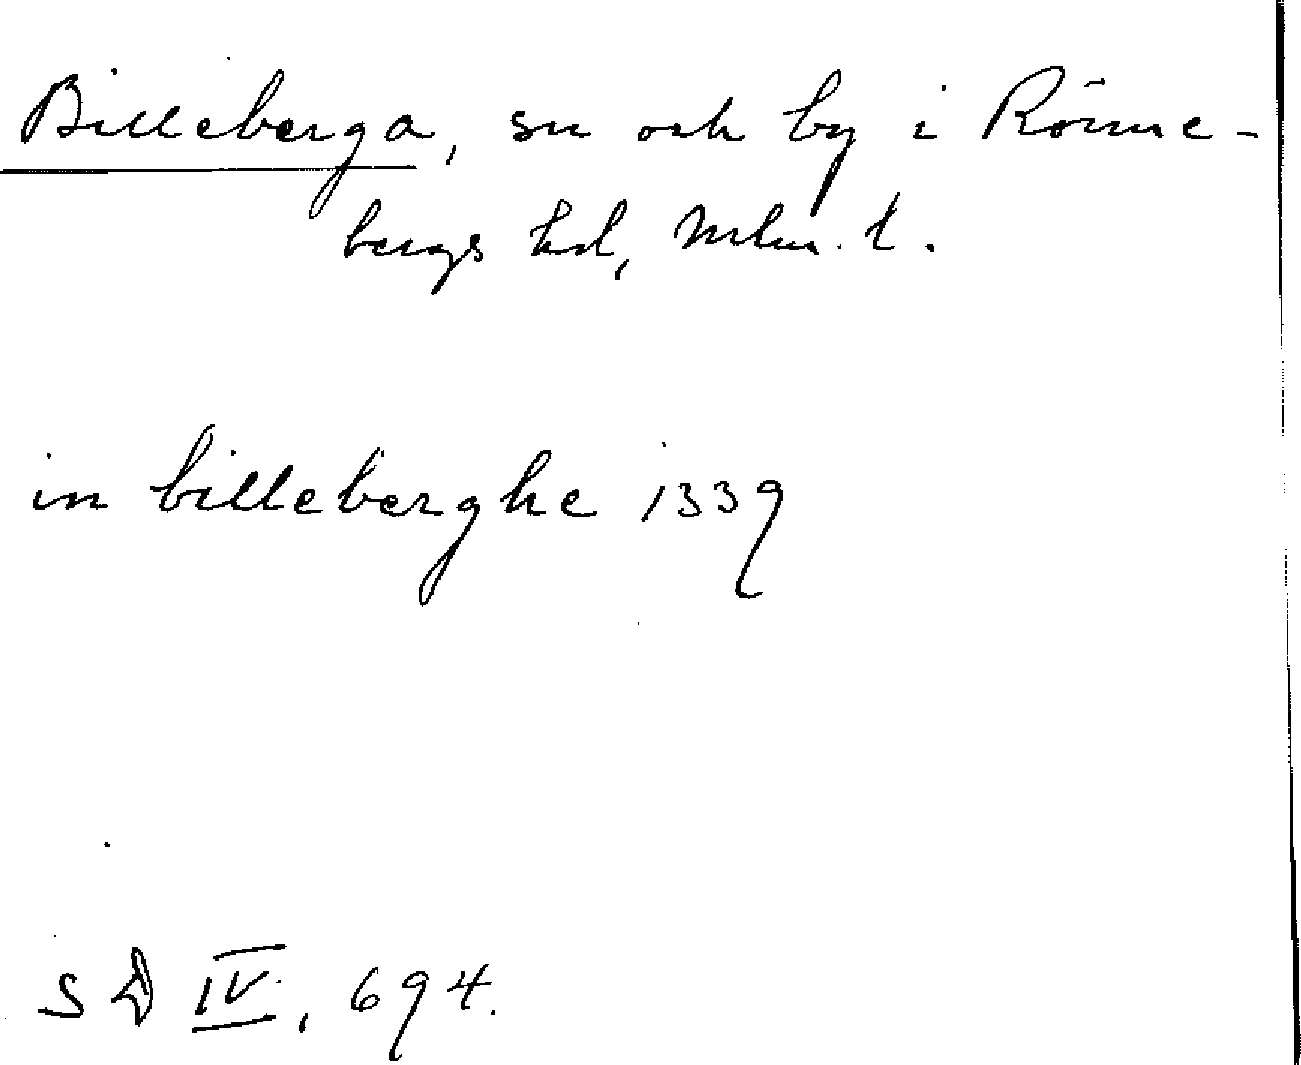 Billeberga, sn och by i Rönne-
bergs hd, Mlm. l.
in billeberghe 1339
SD IV, 694.